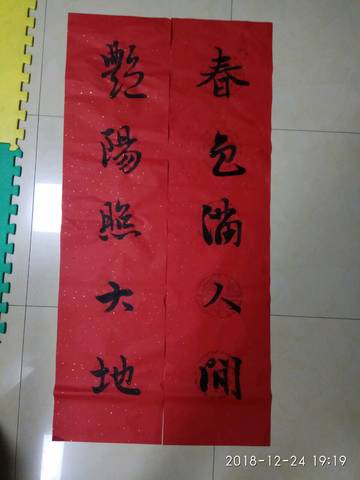 春色滿人間
艷陽照大地
2018-12-24 19:19